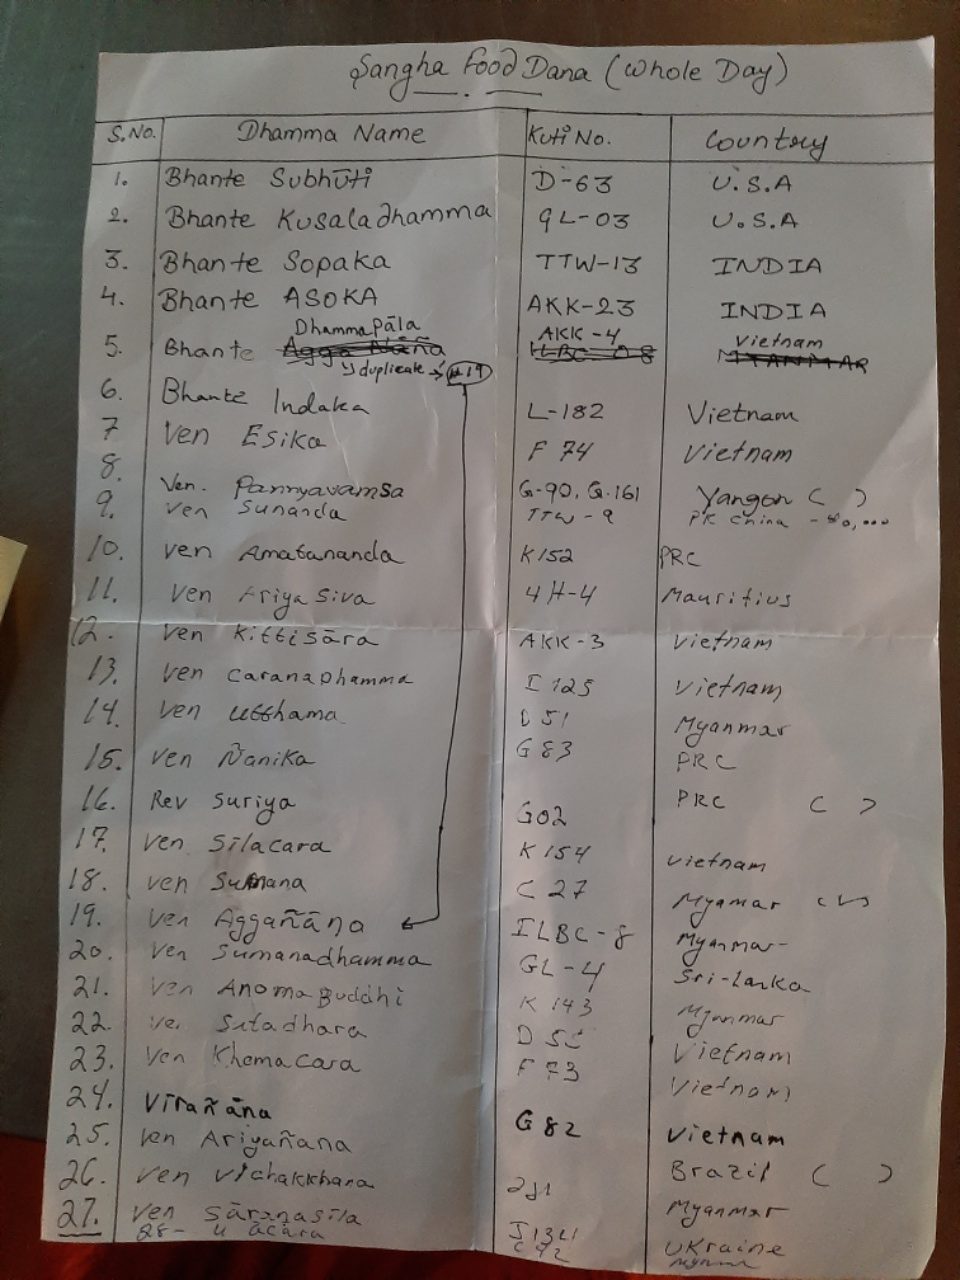 Sangha Food Dana (Whole Day)
S.No. Dhamma Name Kuti No. Country
1. Bhante Subhūti D-63 U.S.A
2. Bhante Kusaladhamma 9L-03 U.S.A
3. Bhante Sopaka TTW-13 INDIA
4. Bhante ASOKA AKK-23 INDIA
Dhammapāla AKK-4 Vietnam
5. Bhante Agga Ñāña ILBC-08 MYANMAR
duplicate → #19
6. Bhante Indaka L-182 Vietnam
7 Ven Esika F 74 Vietnam
8. Ven. Pannyavamsa G-90, G-161 Yangon ( )
9. Ven Sunanda TTW-9 PK China
10. Ven Amatananda K152 PRC
11. Ven Ariya Siva 4H-4 Mauritius
12. Ven Kittisāra AKK-3 Vietnam
13. Ven Caranadhamma I 125 Vietnam
14. Ven Utthama D 51 Myanmar
15. Ven Ñanika G 83 PRC
16. Rev Suriya G02 PRC ( )
17. Ven Sīlacara K 154 Vietnam
18. Ven Sumana C 27 Myamar
19. Ven Aggañāṇa ILBC-8 Myanmar
20. Ven Sumanadhamma GL-4 Sri-Lanka
21. Ven Anoma Buddhi K 143 Myanmar
22. Ven Sutadhara D 55 Vietnam
23. Ven Khemacara F 73 Vietnam
24. Virañāna G 82 Vietnam
25. Ven Ariyañana Brazil ( )
26. Ven Vichakkhana Myanmar
27. Ven Sāraṇasīla Ukraine
28- U ācāra